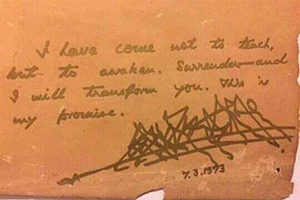 I have come not to teach,
but to awaken. Surrender—and
I will transform you. This is
my promise.
7.3.1973